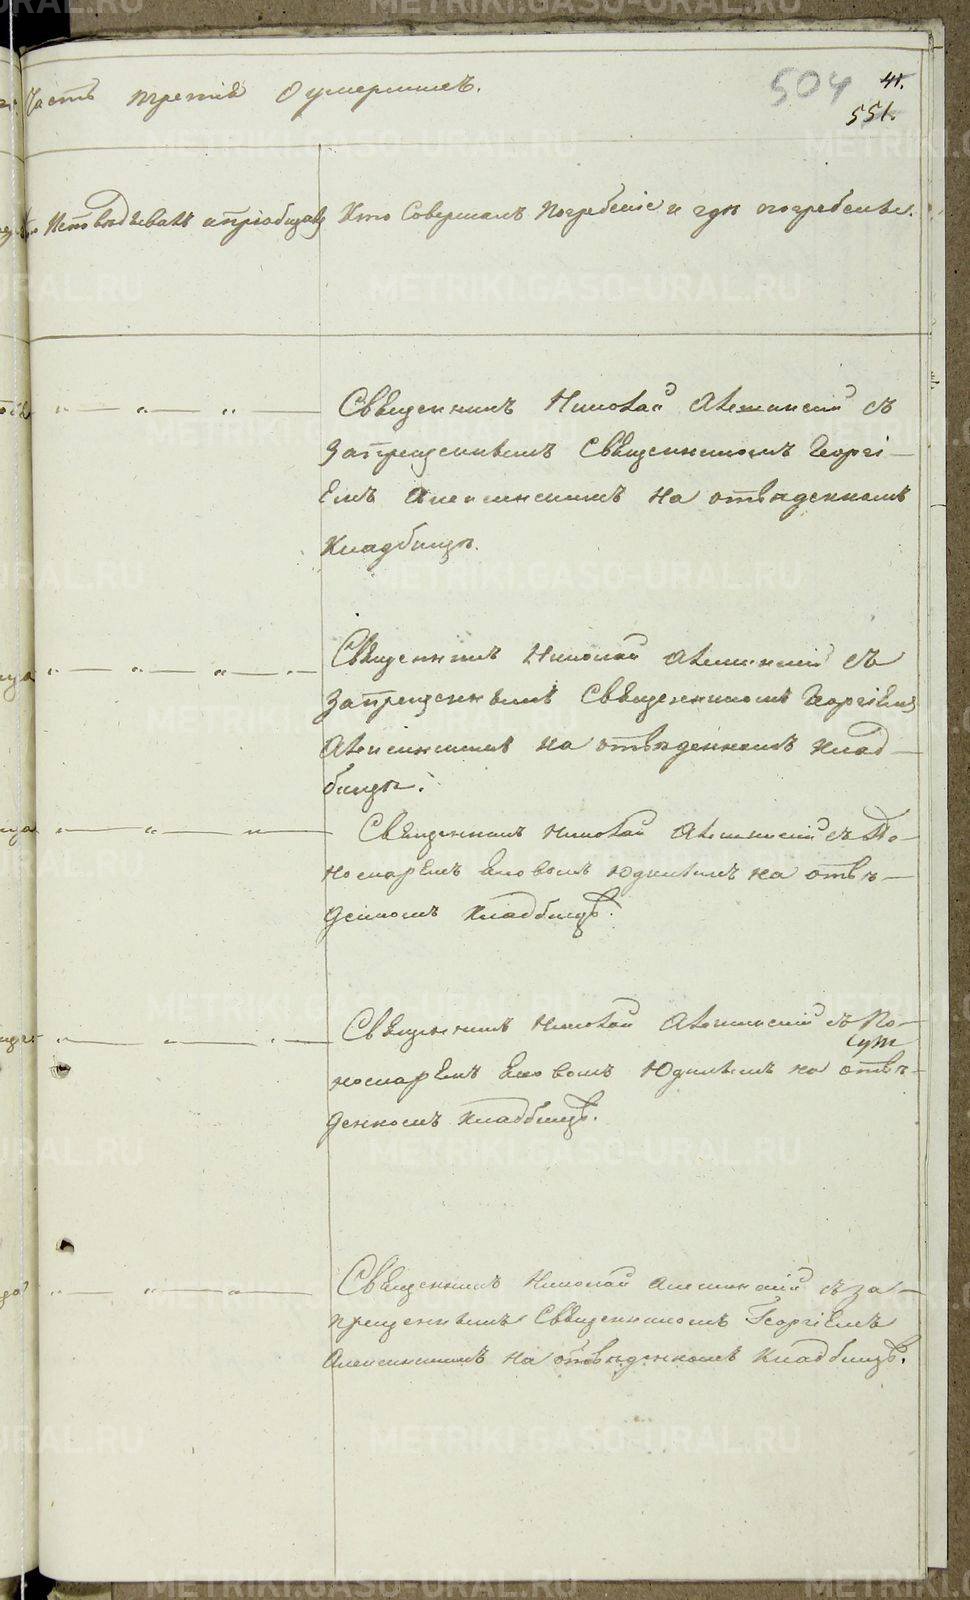 Часть третія О умершихъ.
504
41.
551.
Исповѣдывалъ и пріобщалъ
Кто Совершалъ Погребеніе и гдѣ погребены.
Священникъ Николай Алексинскій съ
Запрещеннымъ Священникомъ Георгі-
Емъ Алексинскимъ на отвѣденномъ
Кладбищѣ.
Священникъ Николай Алексинскій съ
Запрещеннымъ Священникомъ Георгіемъ
Алексинскимъ на отвѣденномъ клад-
бищѣ.
Священникъ Николай Алексинскій съ По-
номаремъ Яковомъ Юдинымъ на отвѣ-
денномъ Кладбищѣ.
Священникъ Николай Алексинскій съ По-
номаремъ Яковомъ Юдинымъ на отвѣ-
денномъ Кладбищѣ.
Священникъ Николай Алексинскій съ за-
прещеннымъ Священникомъ Георгіемъ
Алексинскимъ на отвѣденномъ Кладбищѣ.
METRIKI.GASO-URAL.RU